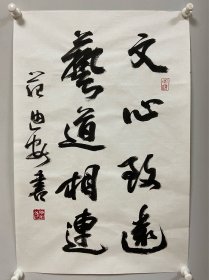 文心致遠
藝道相連
范曲安書